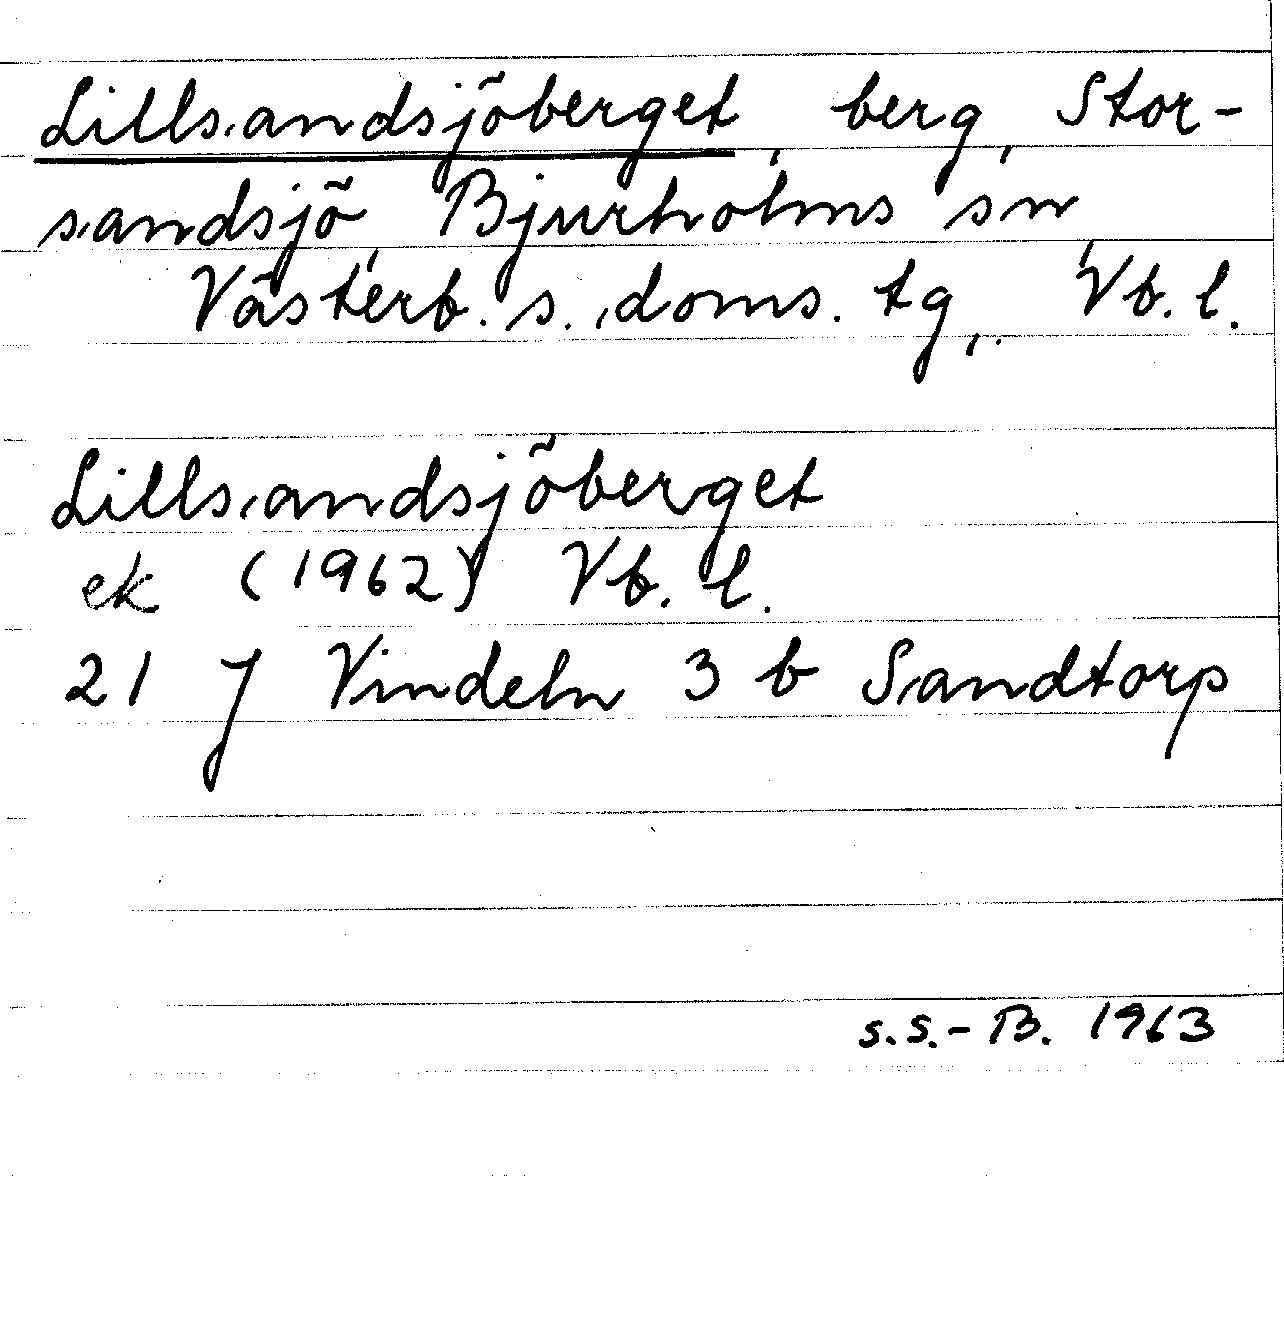 Lillsandsjöberget, berg, Stor-
sandsjö, Bjurholms sn,
Västerb. s. doms. tg, Vb. l.
Lillsandsjöberget
ek (1962) Vb. l.
21 J Vindeln 3 b Sandtorp
S.S.-B. 1963